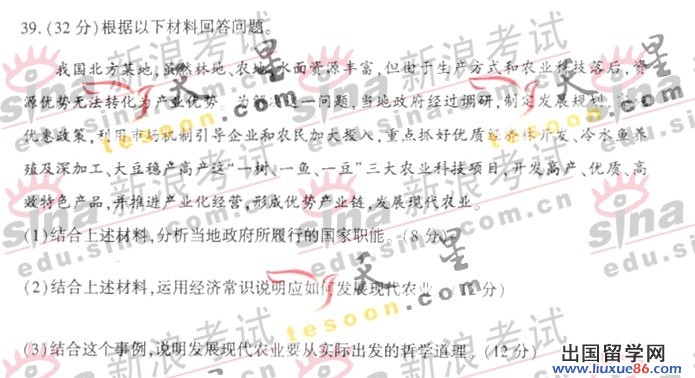 39.(32 分)根据以下材料回答问题。
我国北方某地,虽然林地、农地、水面资源丰富,但由于生产方式和农业科技落后,资
源优势无法转化为产业优势。为解决这一问题,当地政府经过调研,制定发展规划,
优惠政策,利用市场机制引导企业和农民加大投入,重点抓好优质经济林开发、冷水鱼养
殖及深加工、大豆稳产高产这“一树、一鱼、一豆”三大农业科技项目,开发高产、优质、高
效特色产品,并推进产业化经营,形成优势产业链,发展现代农业。
(1)结合上述材料,分析当地政府所履行的国家职能。(8 分)
(2)结合上述材料,运用经济常识说明应如何发展现代农业。 分)
(3)结合这个事例,说明发展现代农业要从实际出发的哲学道理。(12 分)
sina 新浪考试
edu.sina.com.cn
天星
tesoon.com
出国留学网
www.liuxue86.com